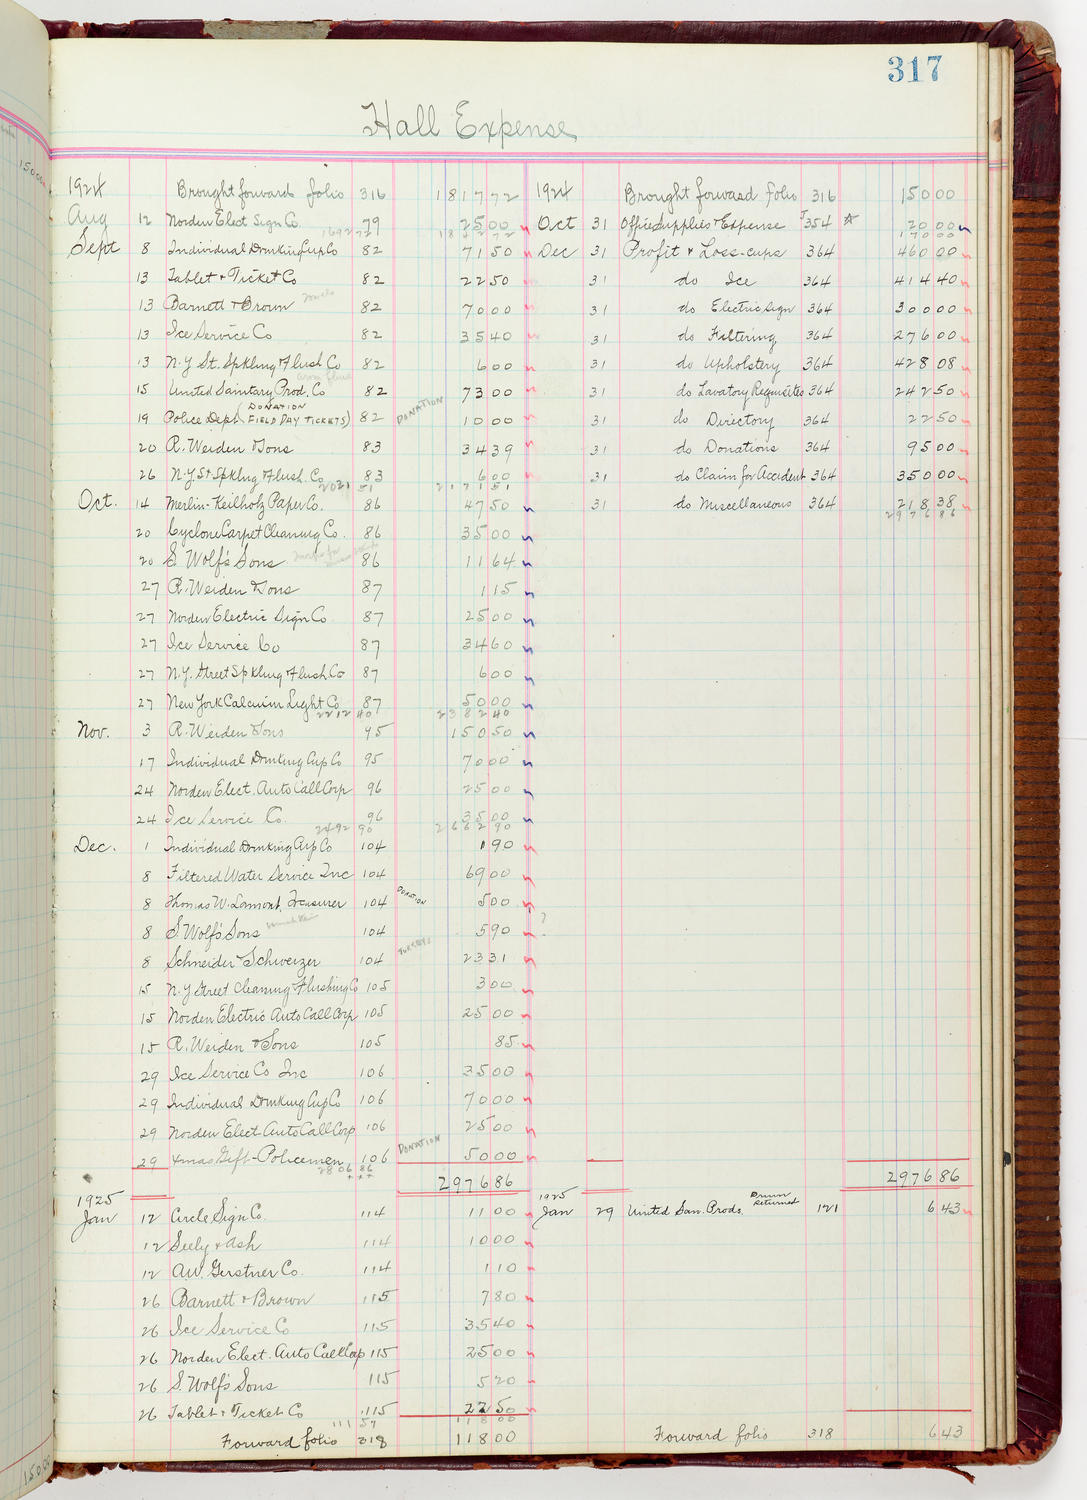 317
Hall Expense
1924 Brought forward folio 316 1817 72
Aug 12 Norden Elect Sign Co. 79 25 00
1692 72 1842 72
Sept 8 Individual Drinking Cup Co 82 71 50
13 Tablet & Ticket Co 82 22 50
13 Barnett & Brown 82 70 00
13 Ice Service Co 82 35 40
13 N.Y St. Spkling & Flush Co 82 6 00
15 United Sanitary Prod. Co 82 73 00
DONATION
19 Police Dept. FIELD DAY TICKETS) 82 DONATION 10 00
20 R. Weiden & Sons 83 34 39
26 N.Y St Spkling & Flush. Co 83 6 00
2021 51 2171 51
Oct. 14 Merlin-Keilholz Paper Co. 86 47 50
20 Cyclone Carpet Cleaning Co. 86 35 00
20 S. Wolf's Sons 86 11 64
27 R. Weiden & Sons 87 1 15
27 Norden Electric Sign Co 87 25 00
27 Ice Service Co 87 34 60
27 N.Y. Street Spkling & Flush Co 87 6 00
27 New York Calcium Light Co 87 50 00
2212 40 2382 40
Nov. 3 R. Weiden & Sons 95 150 50
17 Individual Drinking Cup Co 95 70 00
24 Norden Elect. Auto Call Corp 96 25 00
24 Ice Service Co. 96 35 00
2492 90 2662 90
Dec. 1 Individual Drinking Cup Co 104 1 90
8 Filtered Water Service Inc 104 69 00
8 Thomas W. Lamont, Treasurer 104 DONATION 5 00
8 S. Wolf's Sons 104 5 90 ?
8 Schneider Schweizer 104 TURKEYS 23 31
15 N.Y Street Cleaning & Flushing Co 105 3 00
15 Norden Electric Auto Call Corp 105 25 00
15 R. Weiden & Sons 105 85
29 Ice Service Co Inc 106 35 00
29 Individual Drinking Cup Co 106 70 00
29 Norden Elect Auto Call Corp 106 25 00
29 Xmas Gift-Policemen 106 DONATION 50 00
2806 86
2976 86
1925
Jan 12 Circle Sign Co. 114 11 00
12 Seely & Ash 114 10 00
12 A.W. Gerstner Co. 114 1 10
26 Barnett & Brown 115 7 80
26 Ice Service Co 115 35 40
26 Norden Elect. Auto Call Corp 115 25 00
26 S. Wolf's Sons 115 5 20
26 Tablet & Ticket Co 115 22 50
111 57 118 00
Forward folio 318 118 00
1924 Brought forward folio 316 150 00
Oct 31 Office Supplies & Expense J354 20 00
170 00
Dec 31 Profit & Loss-cups 364 460 00
31 do Ice 364 414 40
31 do Electric Sign 364 300 00
31 do Filtering 364 276 00
31 do Upholstery 364 428 08
31 do Lavatory Requisites 364 242 50
31 do Directory 364 22 50
31 do Donations 364 95 00
31 do Claim for Accident 364 350 00
31 do Miscellaneous 364 218 38
2976 86
2976 86
1925
Jan 29 United San. Prods. Drum Returned 121 6 43
Forward folio 318 6 43